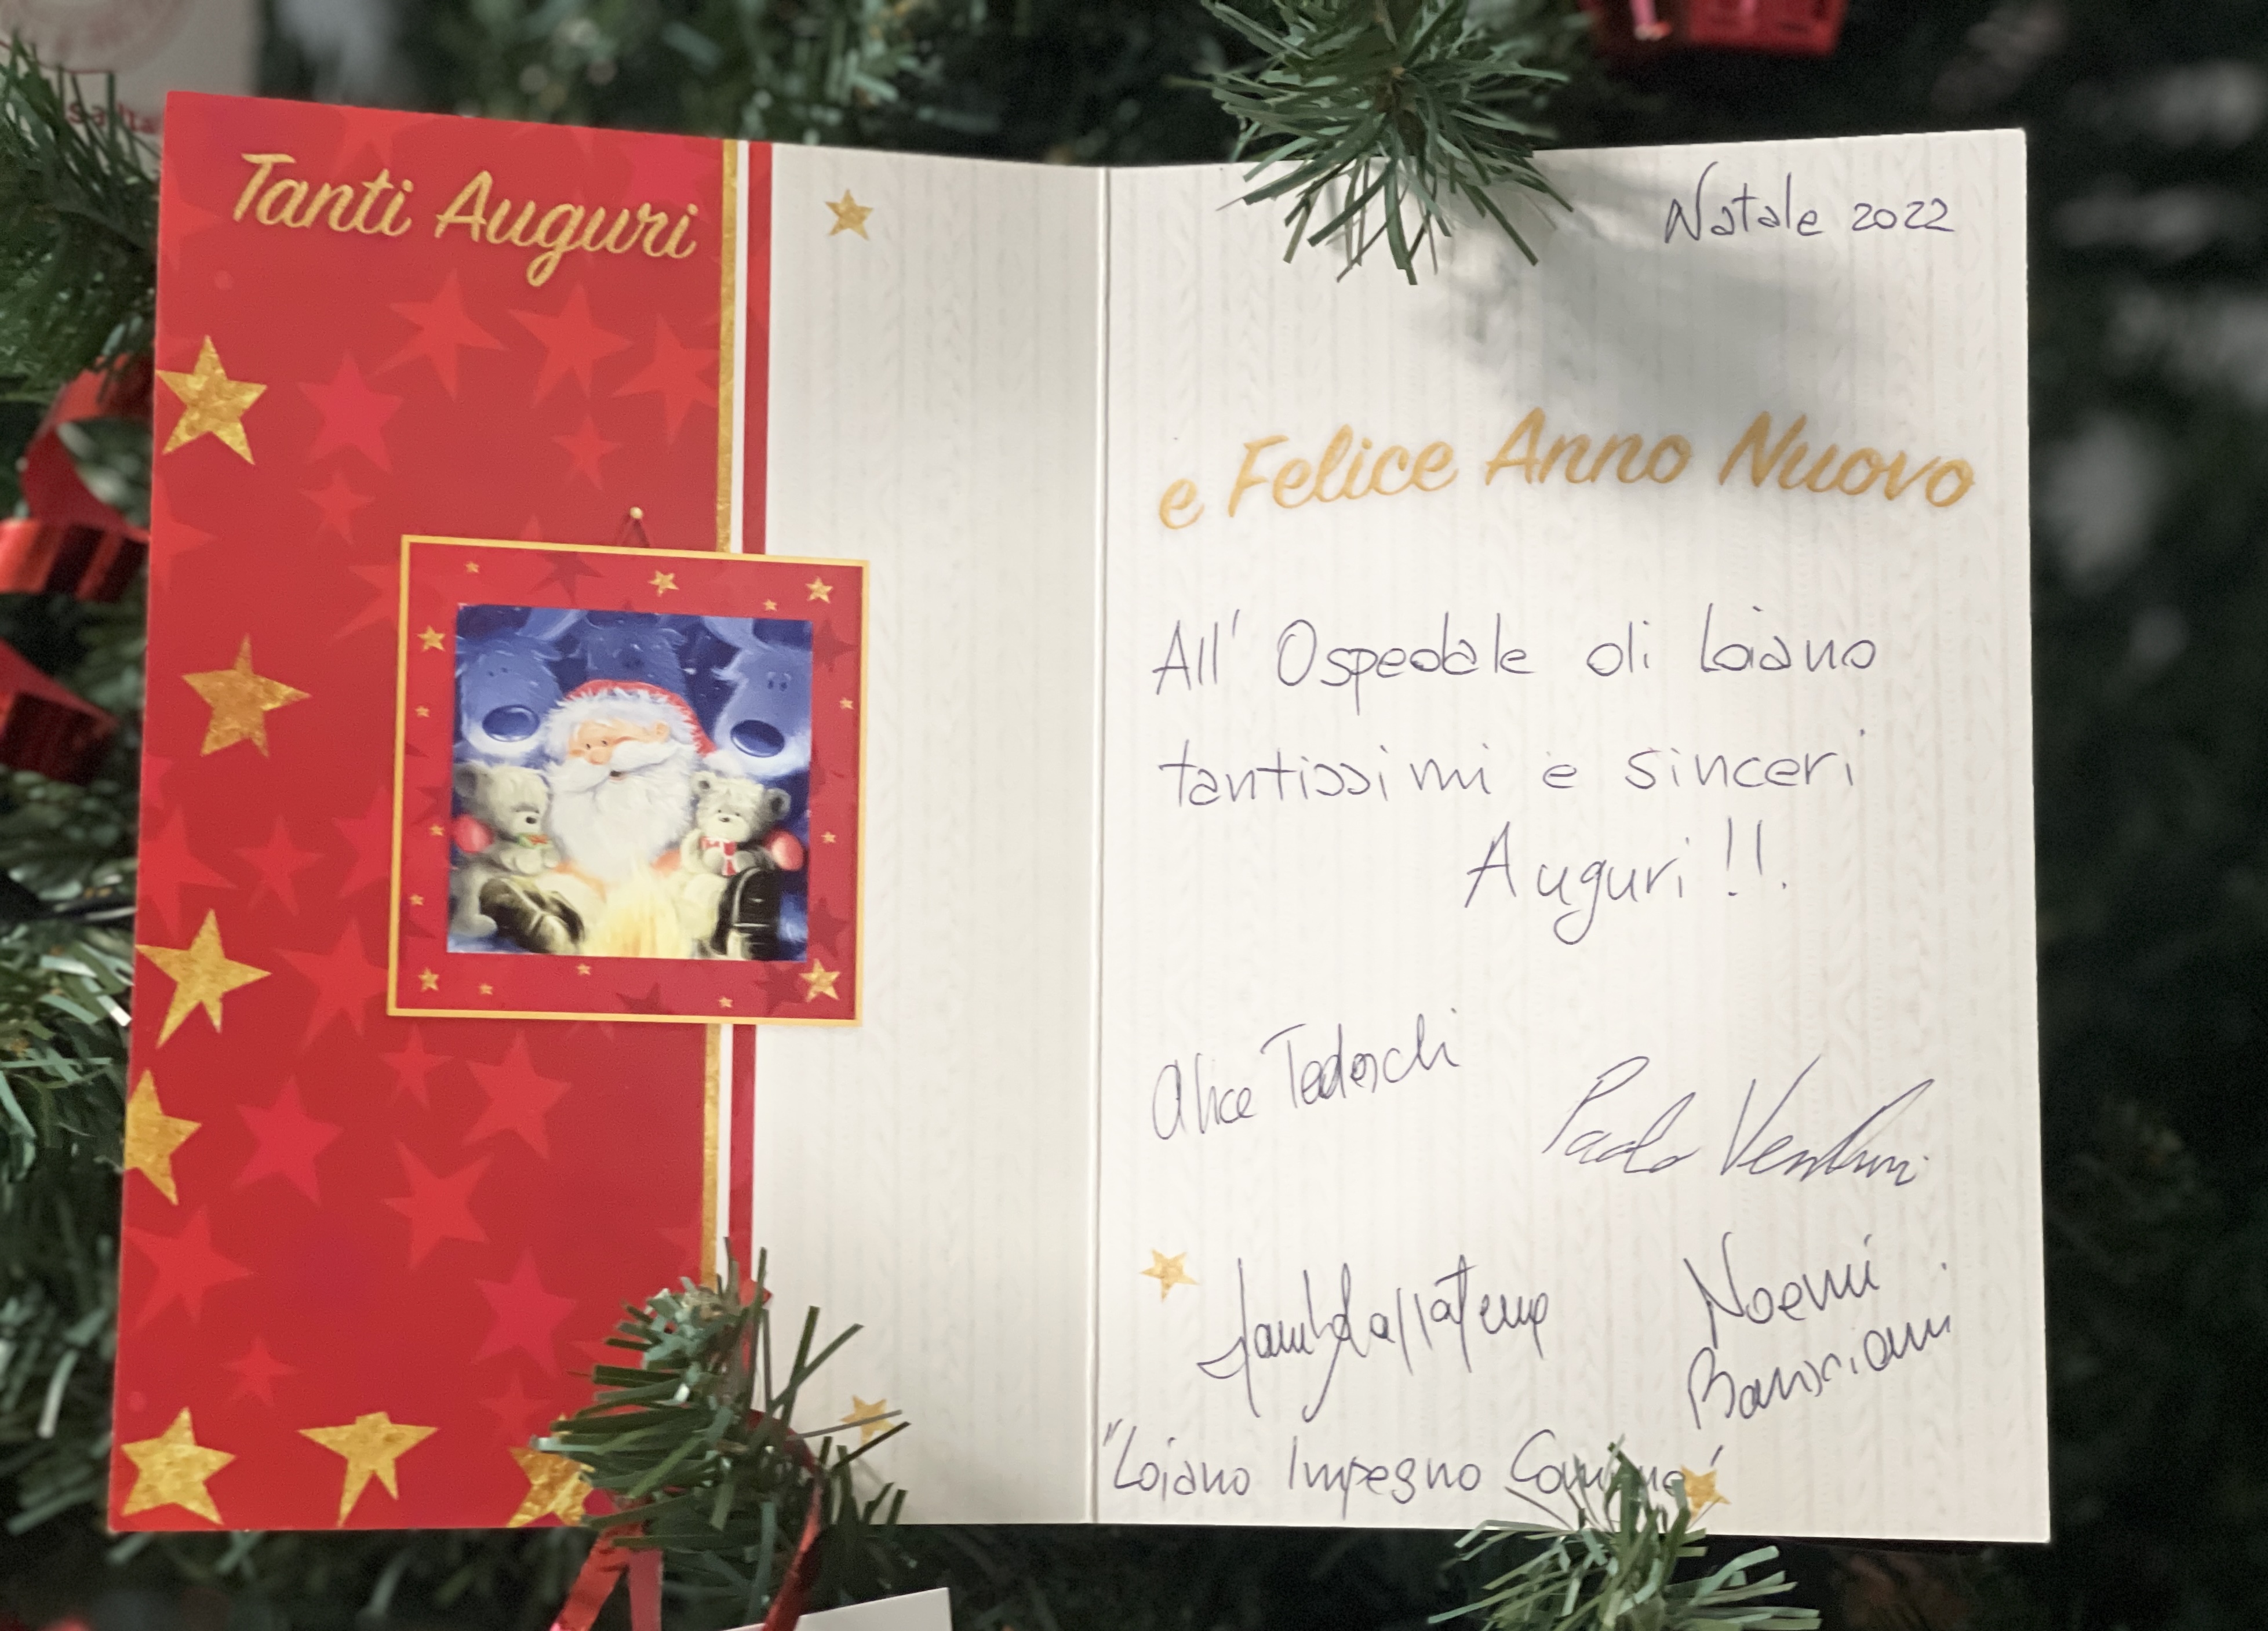 Tanti Auguri
Natale 2022
e Felice Anno Nuovo
All' Ospedale di Loiano
tantissimi e sinceri
Auguri!!
Alice Tedeschi
Paolo Venturi
Noemi
"Loiano Impegno Comune"